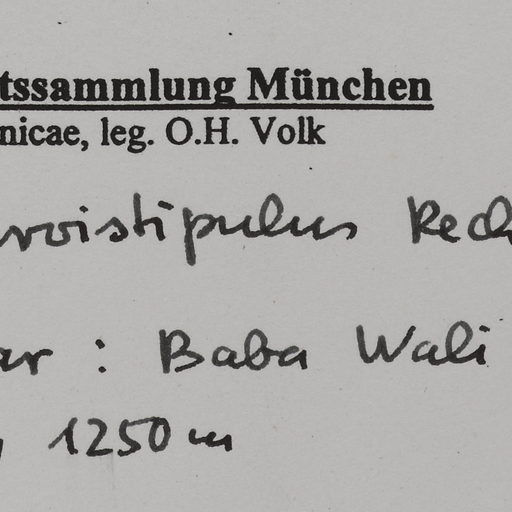 tssammlung München
nicae, leg. O.H. Volk
rvoistipulus Rech
ar : Baba Wali
1250 m